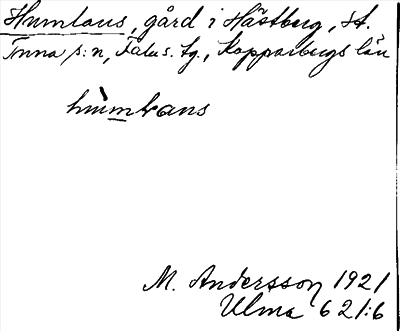 Humlans, gård i Hästberg, St.
Tuna s:n, Falu s. tg., Kopparbergs län
hùmlans
M. Andersson 1921
Ulma 621:6